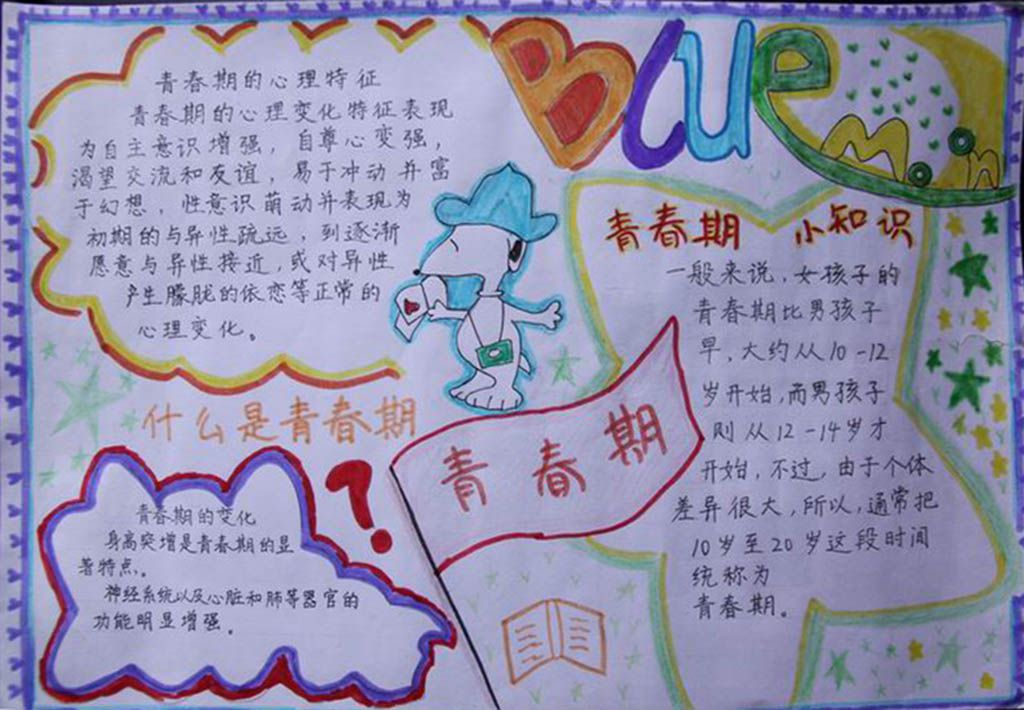 BLUE
Moon
青春期的心理特征
青春期的心理变化特征表现
为自主意识增强，自尊心变强，
渴望交流和友谊，易于冲动并富
于幻想，性意识萌动并表现为
初期的与异性疏远，到逐渐
愿意与异性接近，或对异性
产生朦胧的依恋等正常的
心理变化。
青春期 小知识
一般来说，女孩子的
青春期比男孩子
早，大约从10-12
岁开始，而男孩子
则从12-14岁才
开始，不过，由于个体
差异很大，所以，通常把
10岁至20岁这段时间
统称为
青春期。
什么是青春期
?
青春期
青春期的变化
身高突增是青春期的显
著特点。
神经系统以及心脏和肺等器官的
功能明显增强。